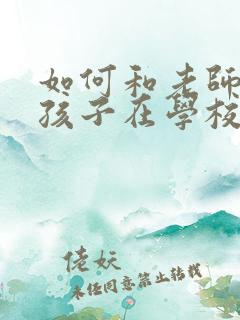 如何和老師
孩子在學校
佬妖
未经同意禁止转载